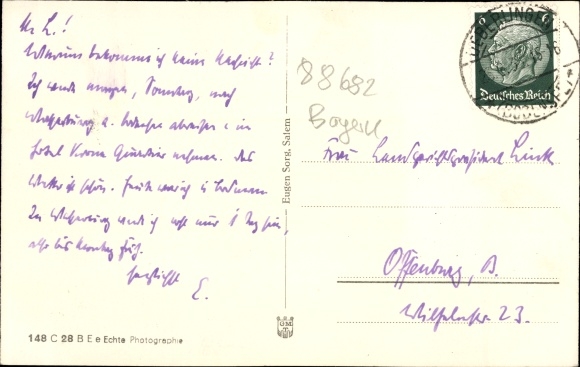 M. L.!
Warum bekomme ich keine Nachricht?
Ich werde morgen, Sonntag, nach
Meersburg a. Bodensee abreisen &
Hotel Krone Quartier nehmen. Das
Wetter ist schön. Heute war ich in
In Meersburg werde ich wohl nur 1 Tag sein,
also bis Montag früh.
Herzlichst
E.
148 C 28 B E e Echte Photographie
Eugen Sorg, Salem
88682
Bayern
6
Deutsches Reich
ÜBERLINGEN
Frau Landgerichtspräsident Link
Offenburg, B.
Wilhelmstr. 23.